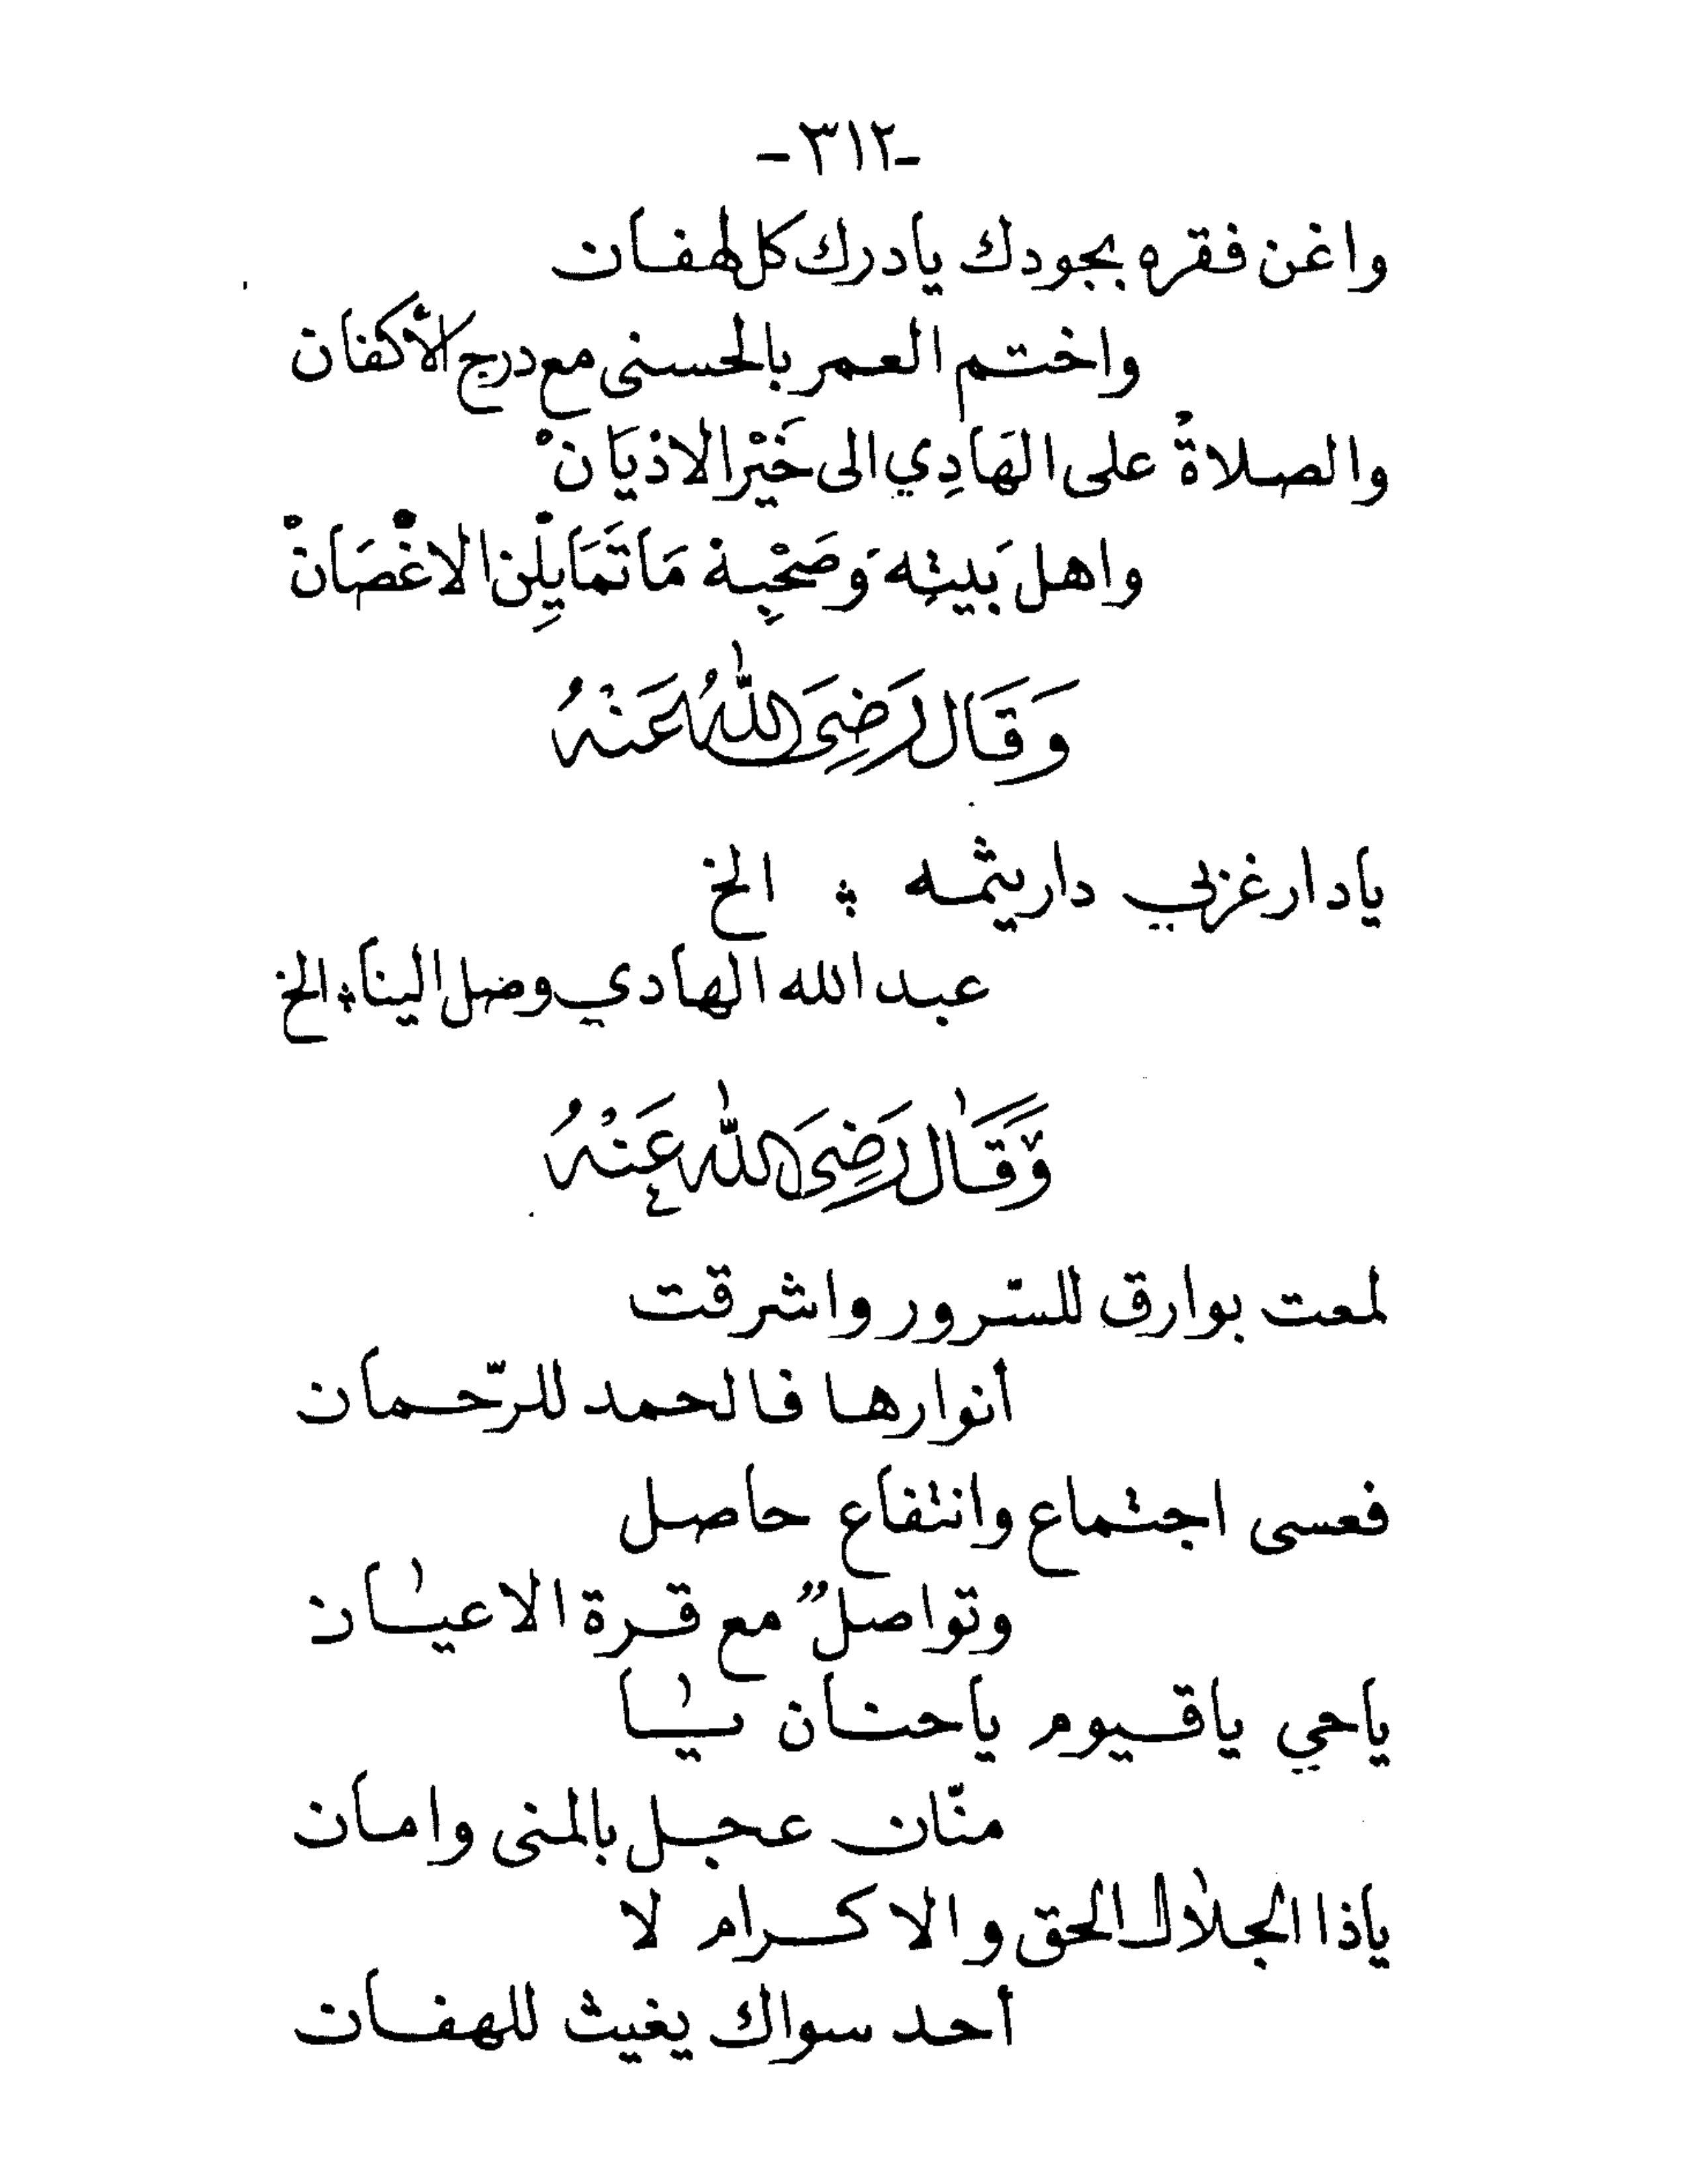 -٣١٢-
واغن فقره بجودك يادرك كل لهفان
واختم العمر بالحسنى مع درج الأكفان
والصلاةْ على الهَادِي الى خَيْر الاذيَانْ
واهل بَيتِه وَصَحْبِهْ مَا تَمَايِلِنْ الاغْصَانْ
وَقَال رَضِىَ اللهُ عَنْهُ
يادار غزبي دار يثمه ؞ الخ
عبد الله الهادي وصل الينا ؞ الخ
وَقَال رَضِىَ الله عَنْهُ
لمعت بوارق للسّرور واشرقت
أنوارها فالحمد للرّحمان
فعسى اجتماع وانتفاع حاصل
وتواصلٌ مع قرة الاعيان
ياحي ياقيوم ياحنان يا
منّان عجل بالمنى وامان
ياذا الجلال الحق والاكرام لا
أحد سواك يغيث للهفان